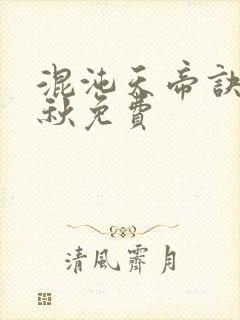 混沌天帝訣
秋免費
清風霽月